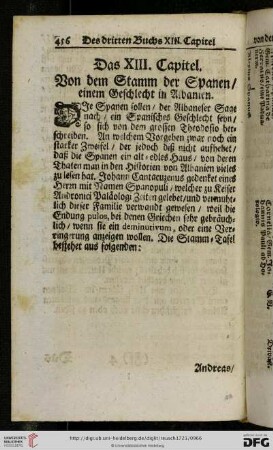 456 Des dritten Buchs XIII. Capitel
Das XIII. Capitel.
Von dem Stamm der Spanen/
einem Geschlecht in Albanien.
Die Spanen sollen / der Albaneser Sage
nach / ein Spanisches Geschlecht seyn/
so sich von dem grossen Theodosio her-
schreiben. An welchem Vorgeben zwar noch ein
starcker Zweifel / der jedoch diß nicht aufhebet/
daß die Spanen ein alt-edles Haus / von deren
Thaten man in den Historien von Albanien vieles
zu lesen hat. Johann Cantacuzenus gedencket eines
Herrn mit Namen Spanopuli / welcher zu Keiser
Andronici Paläologi Zeiten gelebet / und vermuth-
lich dieser Familie verwandt gewesen / weil die
Endung pulos, bei denen Griechen sehr gebräuch-
lich / wenn sie ein deminutivum, oder eine Ver-
ringerung anzeigen wollen. Die Stamm-Tafel
bestehet aus folgenden:
Andreas/
http://digi.ub.uni-heidelberg.de/diglit/
UNIVERSITÄTS-
BIBLIOTHEK
HEIDELBERG
Gefördert durch
DFG